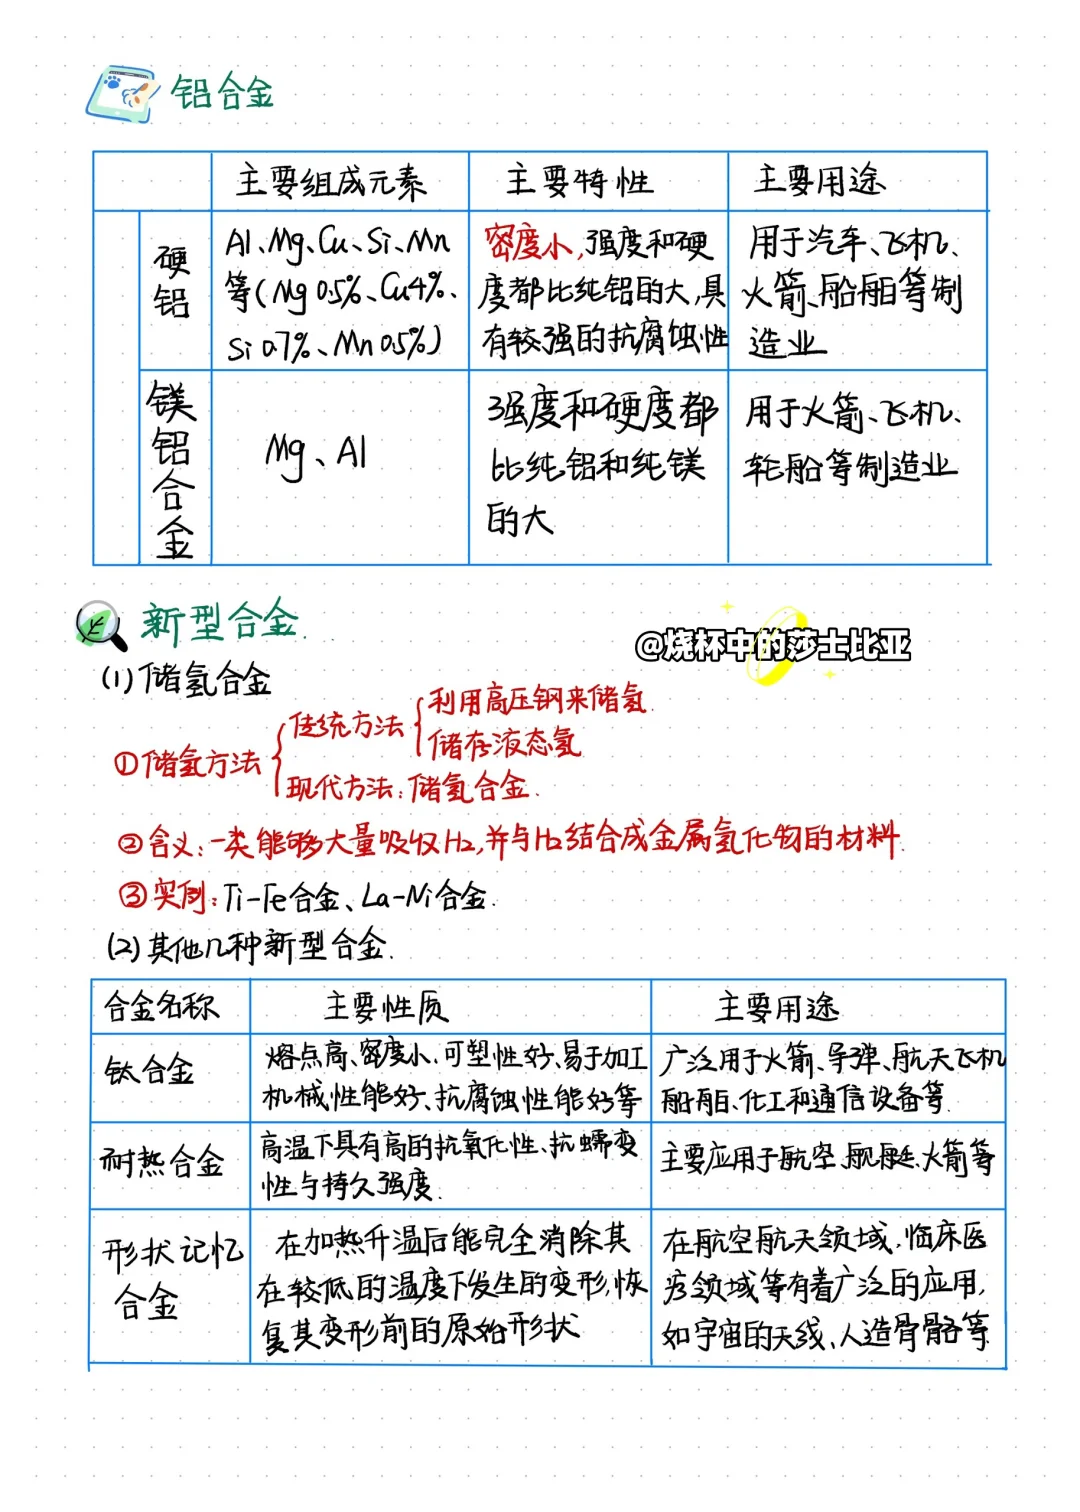 铝合金
主要组成元素 主要特性 主要用途
硬铝
Al、Mg、Cu、Si、Mn
等(Mg 0.5%、Cu4%、
Si 0.7%、Mn 0.5%)
密度小,强度和硬
度都比纯铝的大,具
有较强的抗腐蚀性
用于汽车、飞机、
火箭、船舶等制
造业
镁铝合金
Mg、Al
强度和硬度都
比纯铝和纯镁
的大
用于火箭、飞机、
轮船等制造业
新型合金
@烧杯中的莎士比亚
(1)储氢合金
①储氢方法
传统方法
利用高压钢来储氢
储存液态氢
现代方法:储氢合金
②含义:一类能够大量吸收H₂,并与H₂结合成金属氢化物的材料
③实例:Ti-Fe合金、La-Ni合金.
(2)其他几种新型合金.
合金名称 主要性质 主要用途
钛合金
熔点高、密度小、可塑性好、易于加工
机械性能好、抗腐蚀性能好等
广泛用于火箭、导弹、航天飞机
船舶、化工和通信设备等
耐热合金
高温下具有高的抗氧化性、抗蠕变
性与持久强度.
主要应用于航空、舰艇、火箭等
形状记忆
合金
在加热升温后能完全消除其
在较低的温度下发生的变形,恢
复其变形前的原始形状
在航空航天领域,临床医
疗领域等有着广泛的应用,
如宇宙的天线、人造骨骼等